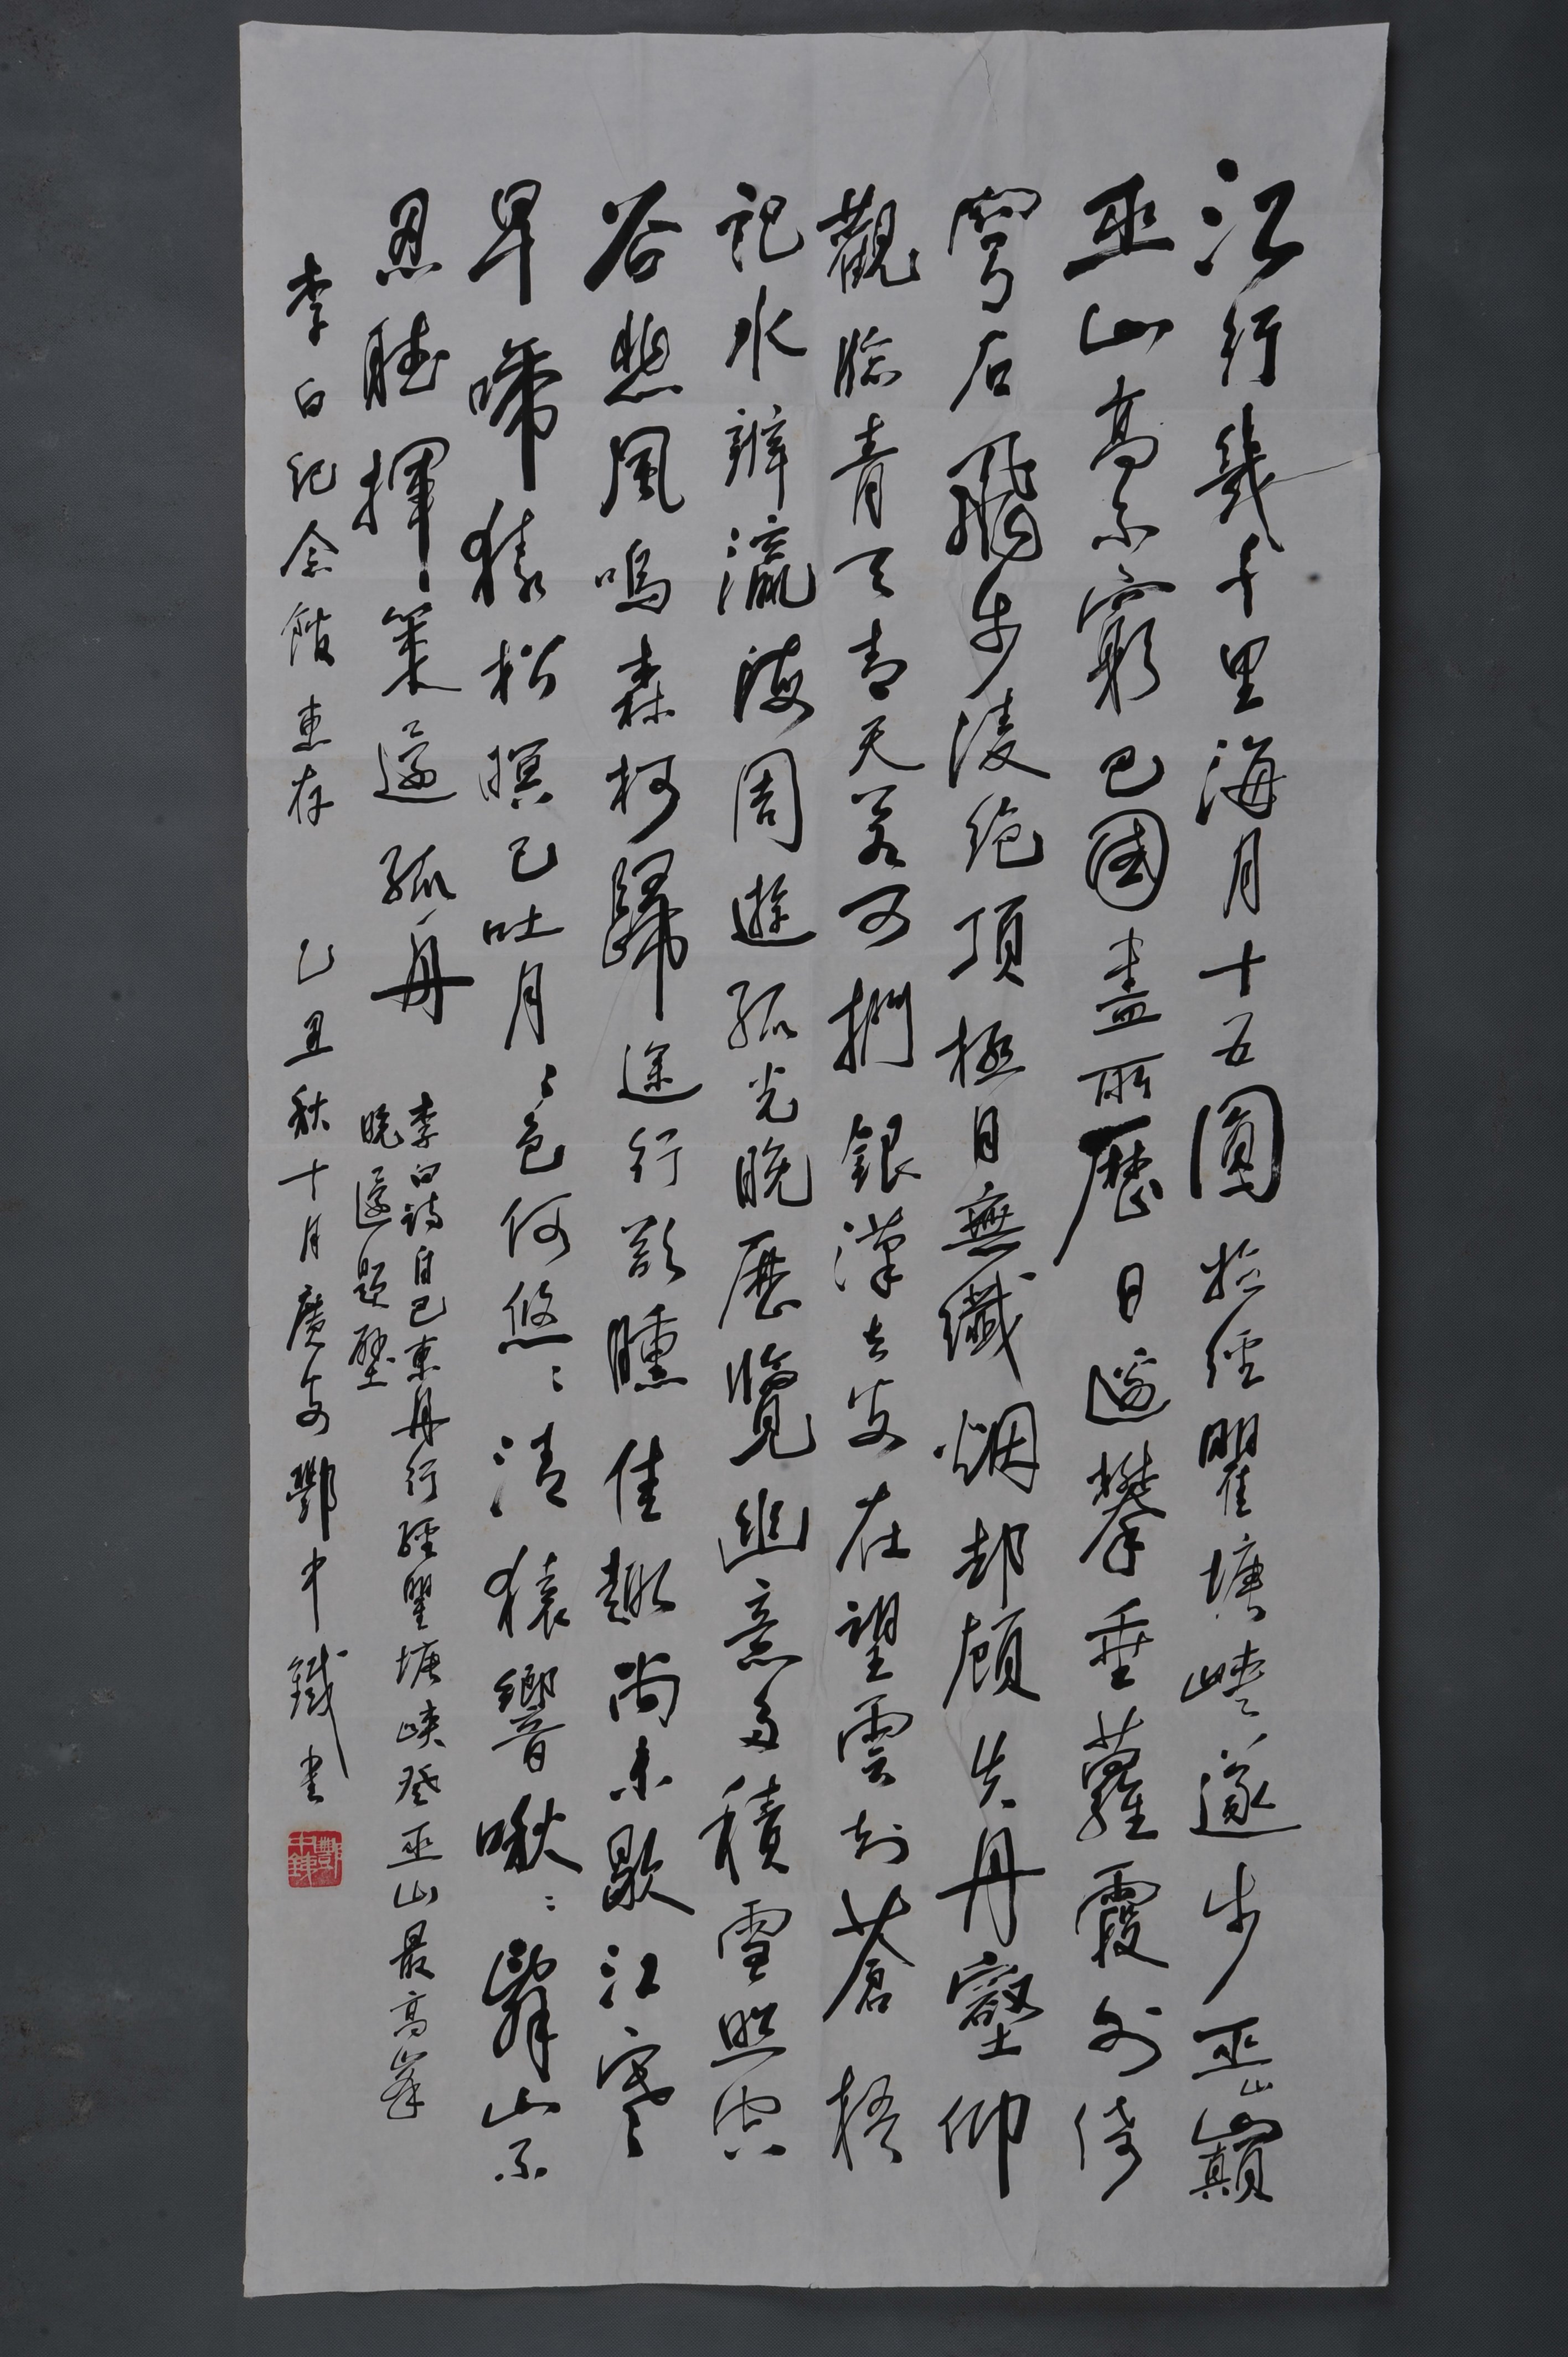 江行幾千里海月十五圓始經瞿塘峽遂步巫山巔
巫山高不窮巴國盡所歷日邊攀垂蘿霞外倚
穹石飛步凌絕頂極目無纖烟却顧失丹壑仰
觀臨青天青天若可捫銀漢去安在望雲知蒼梧
記水辨瀛海周遊孤光晚歷覽幽意多積雪照空
谷悲風鳴森柯歸途行欲曛佳趣尚未歇江寒
早啼猿松暝已吐月〻色何悠〻清猿響啾〻辭山不
忍聽揮策還孤舟
李白詩自巴東舟行經瞿塘峽登巫山最高峯
晚還題壁
李白紀念館惠存 乙丑秋十月廣安鄧中鐵書
鄧中銕